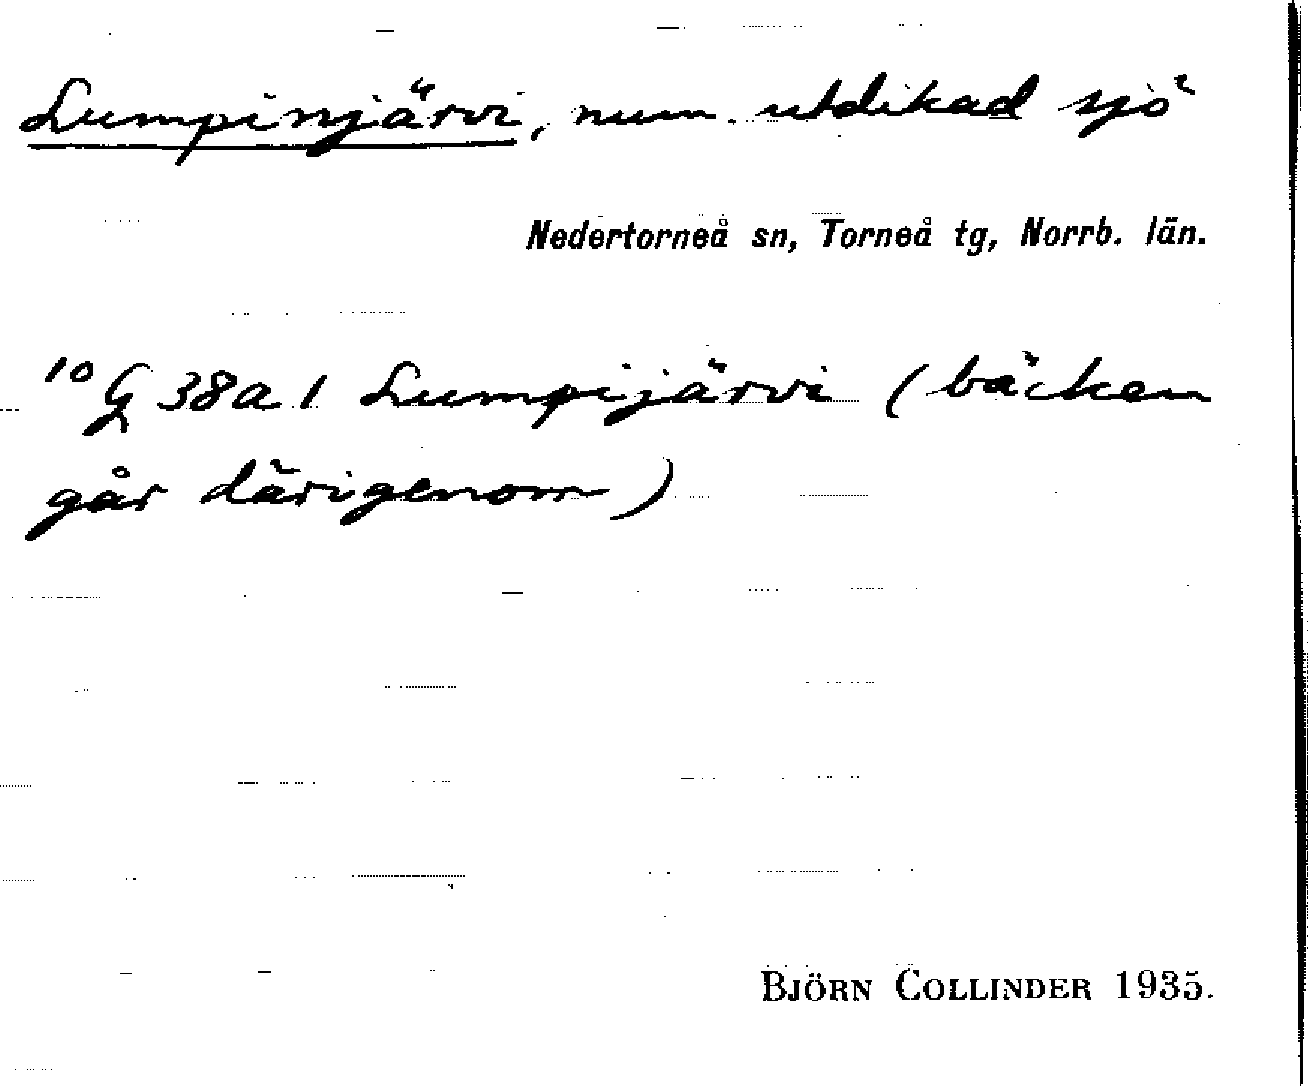 Lumpinjärvi, num. utdikad sjö
Nedertorneå sn, Torneå tg, Norrb. län.
10 G 38 a 1 Lumpijärvi (bäcken
går därigenom)
BJÖRN COLLINDER 1935.